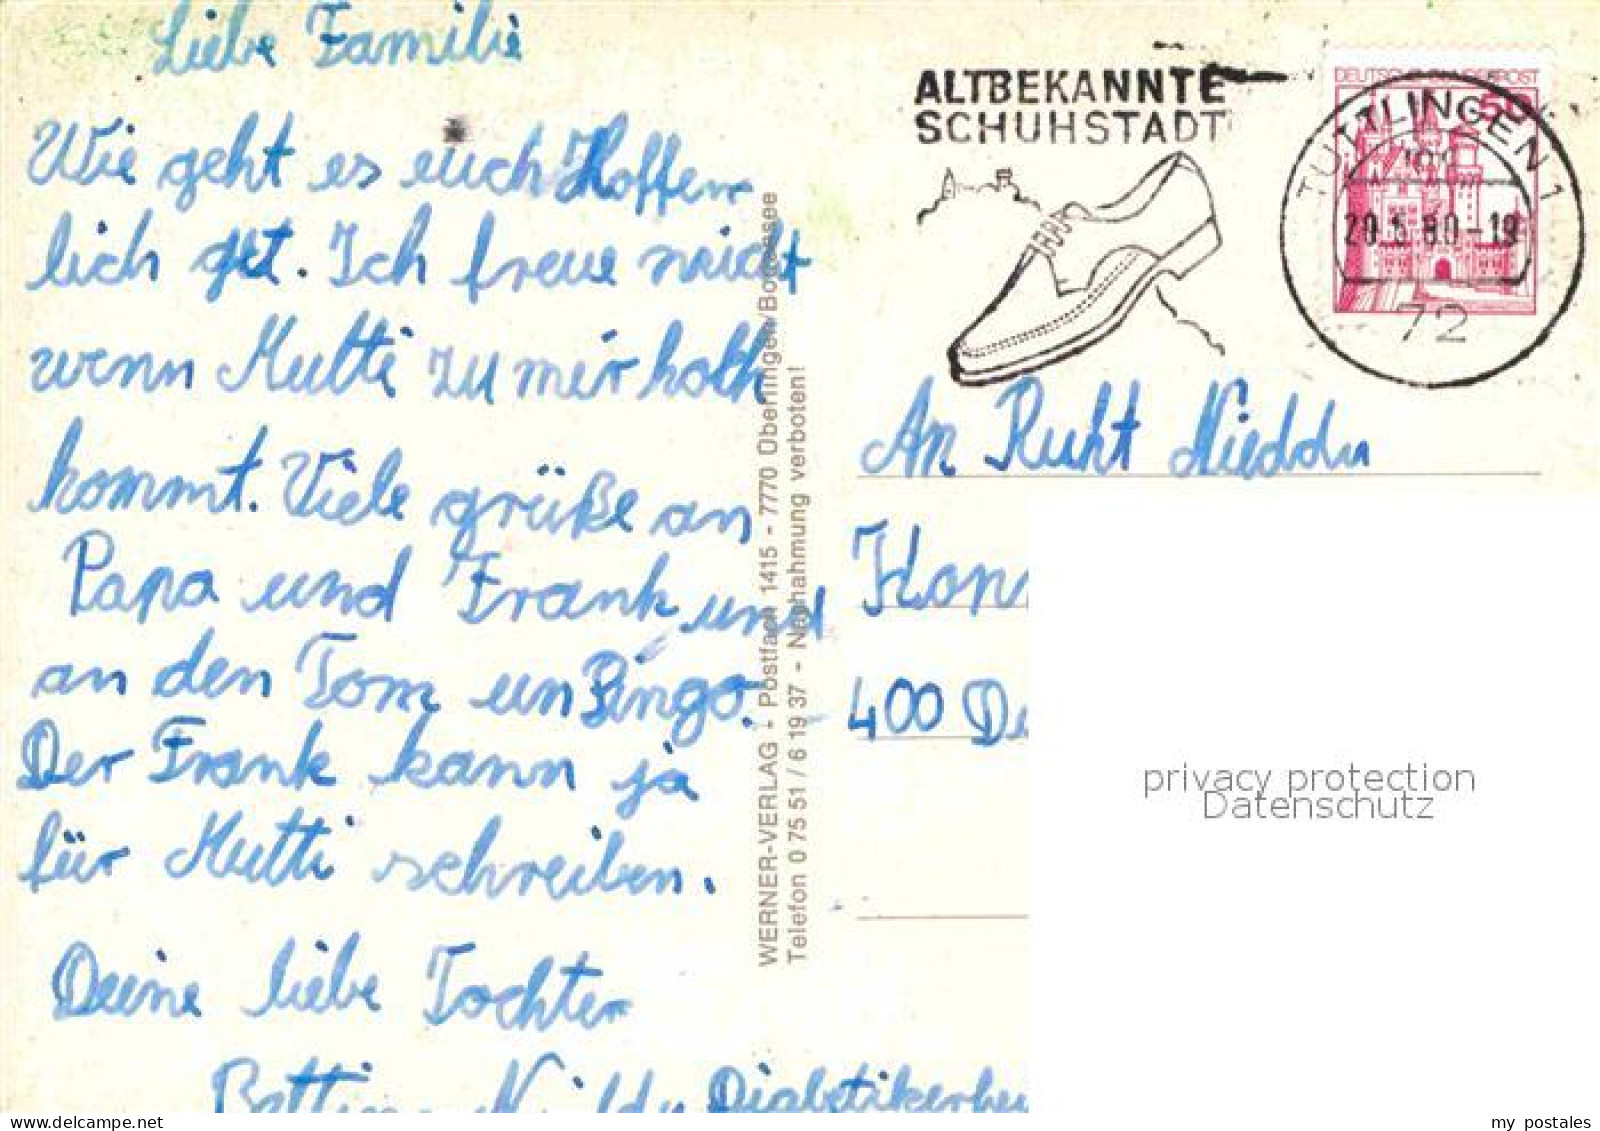 Liebe Familie
Wie geht es euch Hoffen
lich get. Ich freue mich
wenn Mutti zu mir
kommt. Viele grüße an
Papa und Frank und
an den Tom un Bingo.
Der Frank kann ja
für Mutti schreiben.
Deine liebe Tochter
Diabetikerhei
WERNER-VERLAG - Postfach 1415 - 7770 Überlingen/Bodensee
Telefon 0 75 51 / 6 19 37 - Nachahmung verboten!
ALTBEKANNTE
SCHUHSTADT
DEUTSCHE BUNDESPOST
50
TUTTLINGEN 1
20.5.80-19
72
An Ruht Nieddu
Kon
400 De
privacy protection
Datenschutz
www.delcampe.net
my_postales